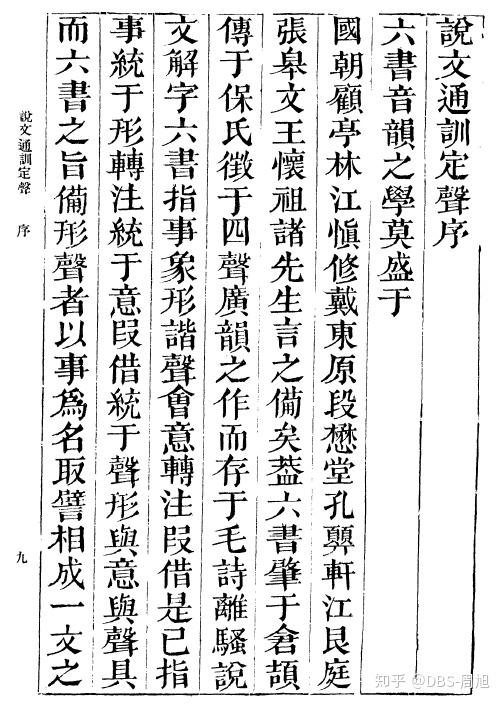 說文通訓定聲序
六書音韻之學莫盛于
國朝顧亭林江愼修戴東原段懋堂孔顨軒江艮庭
張皋文王懷祖諸先生言之備矣葢六書肇于倉頡
傳于保氏徵于四聲廣韻之作而存于毛詩離騷說
文解字六書指事象形諧聲會意轉注叚借是已指
事統于形轉注統于意叚借統于聲形與意與聲具
而六書之旨備形聲者以事爲名取譬相成一文之
說文通訓定聲 序
九
知乎 @DBS-周旭